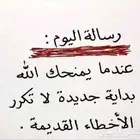 رسالة اليوم :
عندما يمنحك الله
بداية جديدة لا تكرر
الأخطاء القديمة .